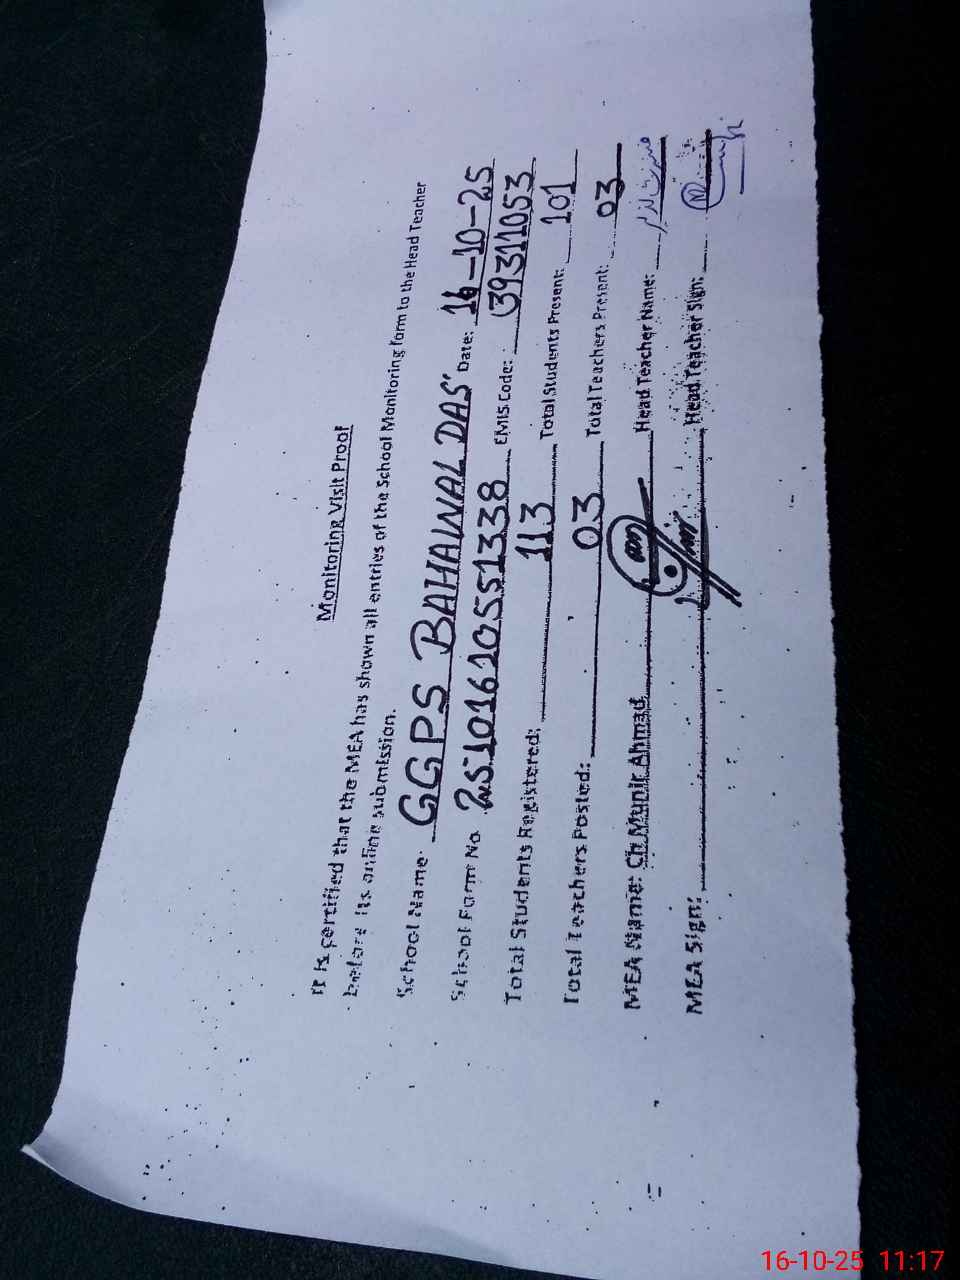 Monitoring Visit Proof
It is certified that the MEA has shown all entries of the School Monitoring form to the Head Teacher
before its online submission.
School Name: GGPS BAHAWAL DAS Date: 16-10-25
School Form No 25101610551338 EMIS Code: 39311053
Total Students Registered: 113 Total Students Present: 101
Total Teachers Posted: 03 Total Teachers Present: 03
MEA Name: Ch Munir Ahmad Head Teacher Name:
MEA Sign: Head Teacher Sign:
16-10-25 11:17